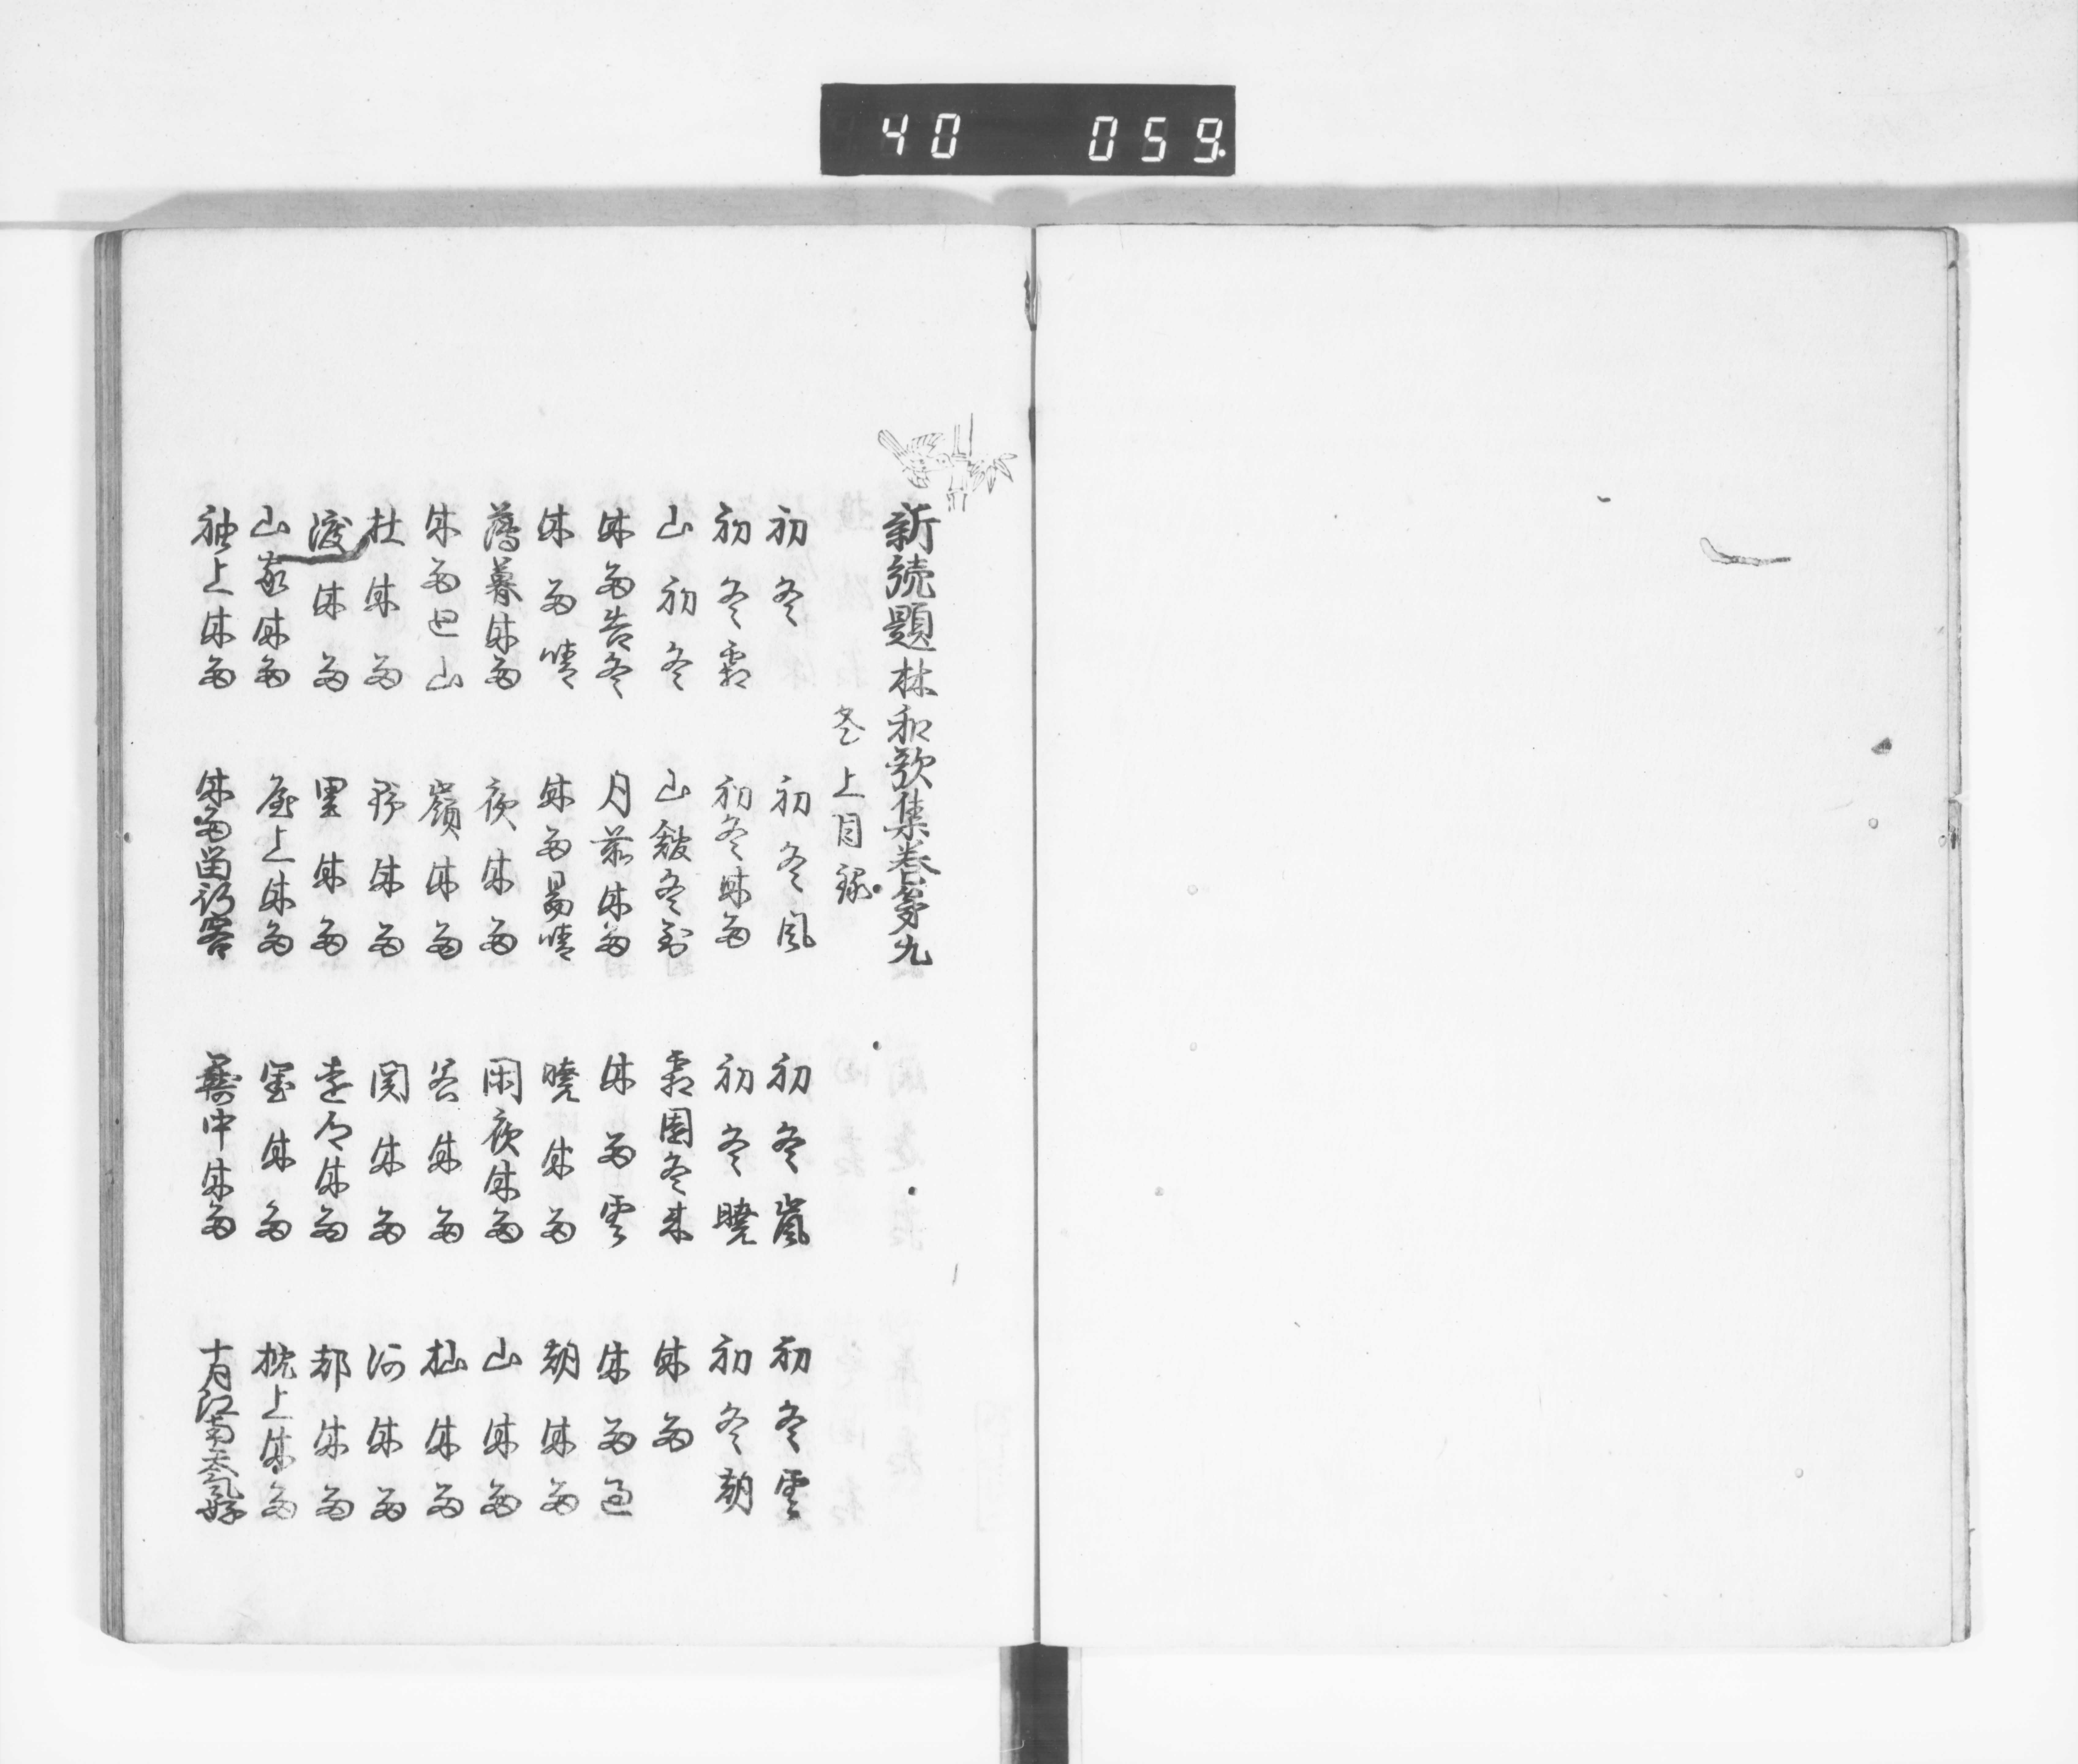 40 059
新続題林和歌集巻第九
冬上目録
初冬 初冬風 初冬嵐 初冬雲
初冬霜 初冬時雨 初冬暁 初冬朝
山初冬 山館冬到 霜園冬来 時雨
時雨告冬 月前時雨 時雨雲 時雨過
時雨晴 時雨易晴 暁時雨 朝時雨
薄暮時雨 夜時雨 閑夜時雨 山時雨
時雨廻山 嶺時雨 谷時雨 杣時雨
杜時雨 野時雨 関時雨 河時雨
渡時雨 里時雨 遠郷時雨 都時雨
山家時雨 屋上時雨 窓時雨 枕上時雨
袖上時雨 時雨留客 旅中時雨 十月江南天気好